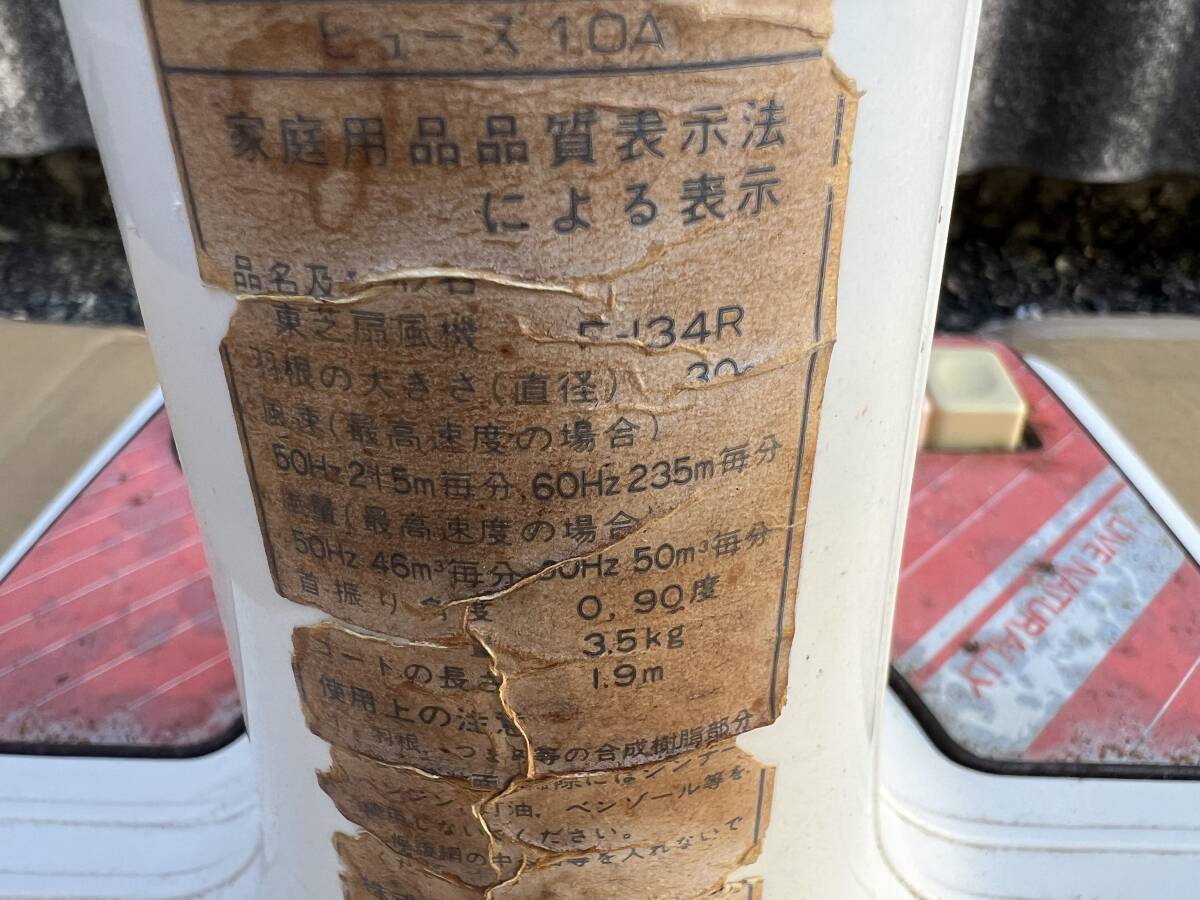 ヒューズ 10A
家庭用品品質表示法
による表示
品名及
東芝扇風機 F-134R
羽根の大きさ(直径) 30
風速(最高速度の場合)
50Hz 215m毎分, 60Hz 235m毎分
風量(最高速度の場合)
50Hz 46m³毎分 60Hz 50m³毎分
首振り角度 0, 90度
3.5kg
コードの長さ 1.9m
使用上の注意
羽根, つまみ等の合成樹脂部分
油, ベンゾール等を
ください。
保護網の中 等を入れないで
NATURALLY